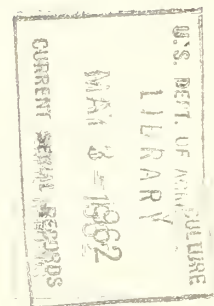 U.S. DEPT. OF AGRICULTURE
LIBRARY
MAY 3 - 1962
CURRENT SERIAL RECORDS